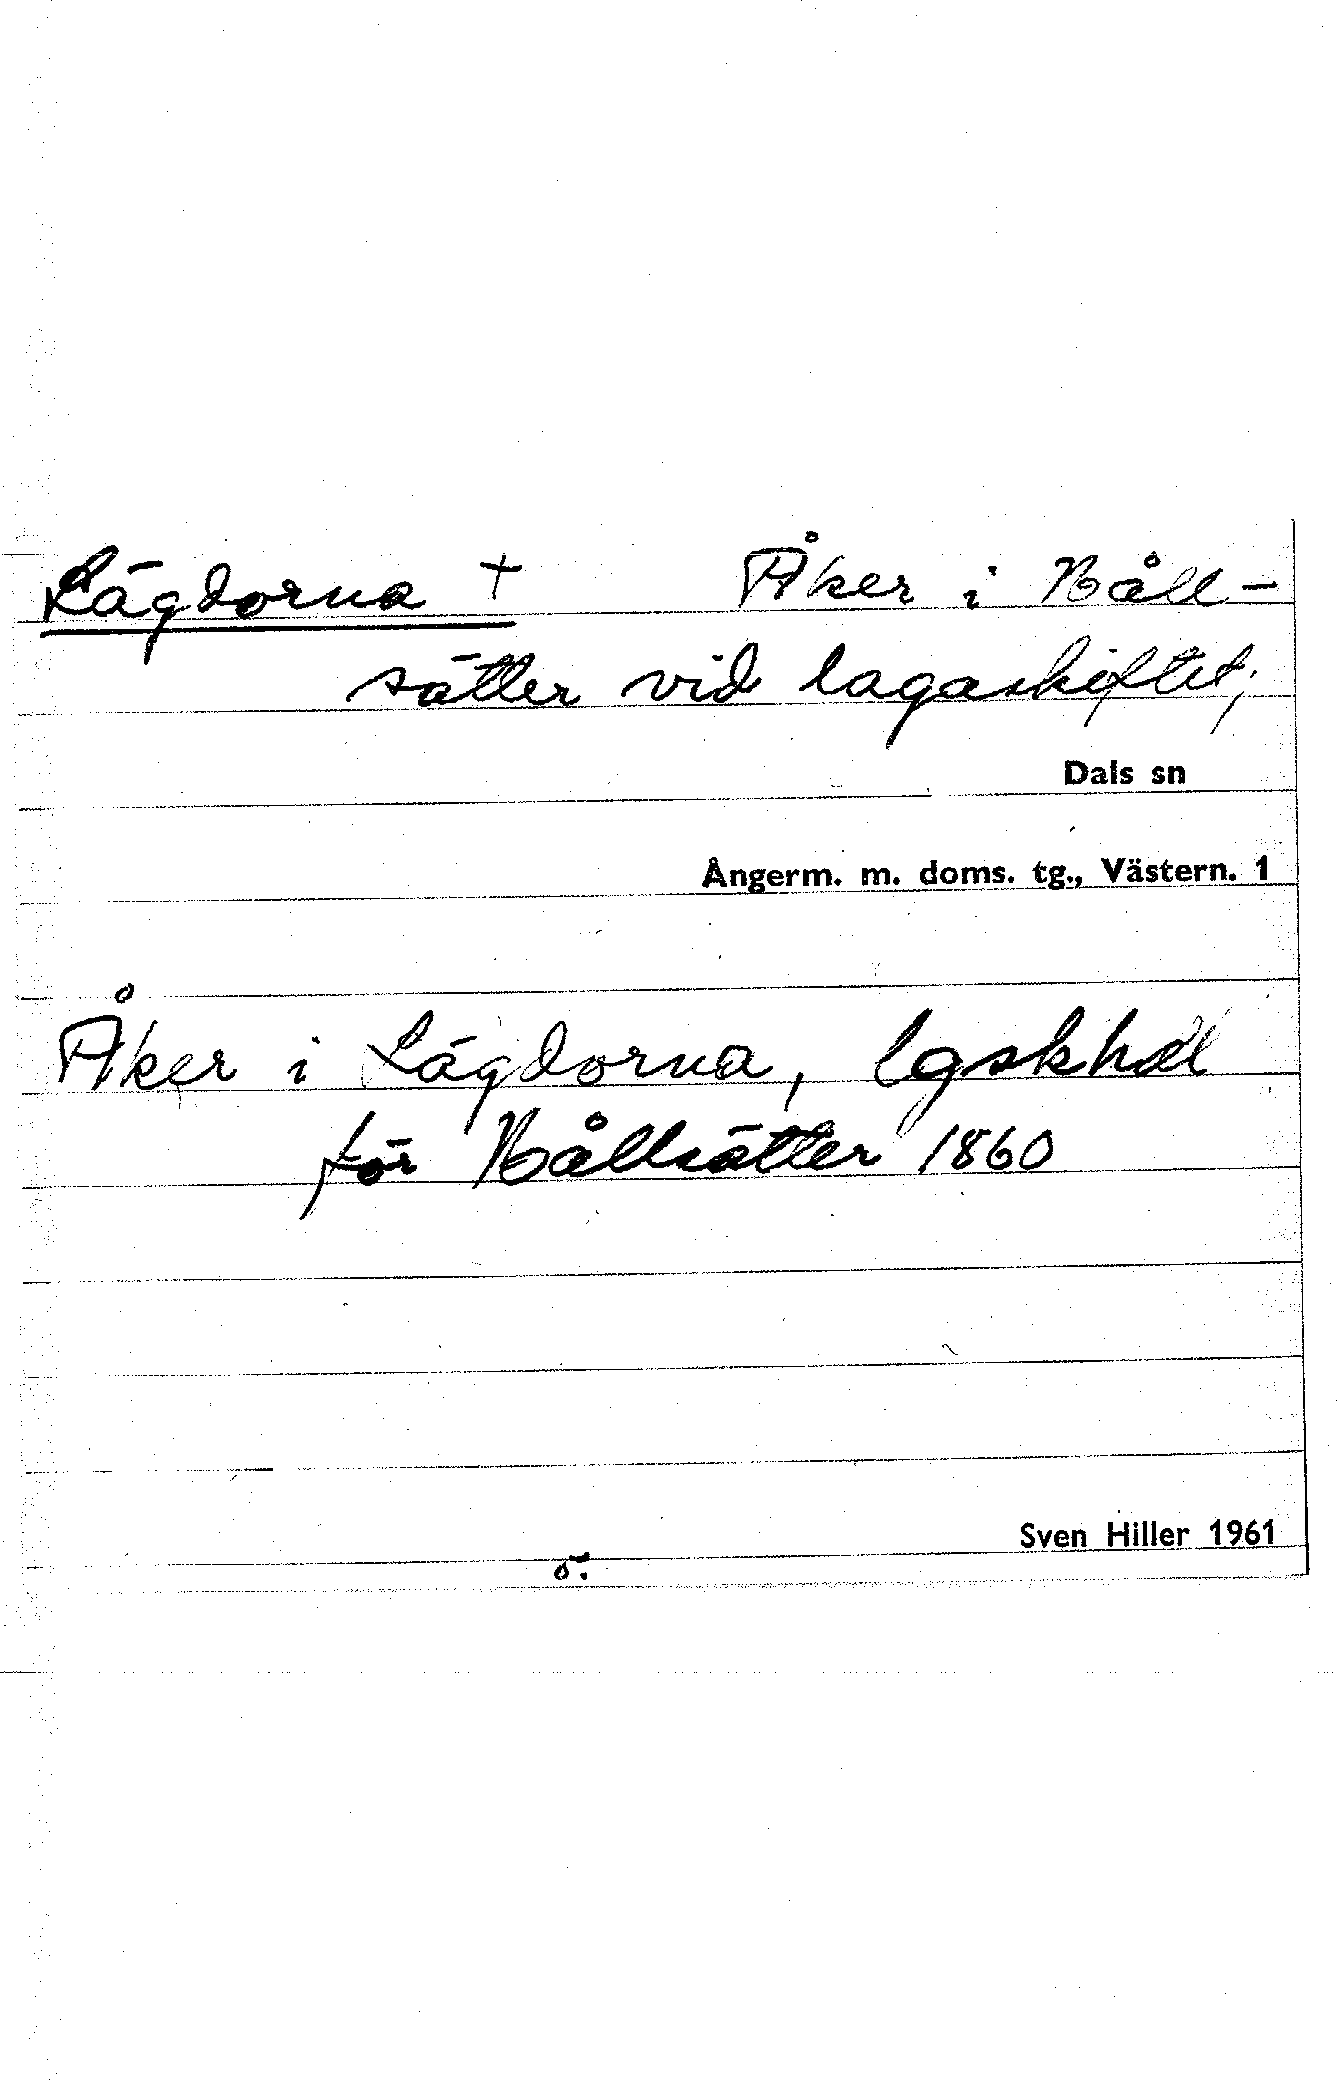 Lägdorna + Åker i Båll-
sätter vid lagaskiftet;
Dals sn
Ångerm. m. doms. tg., Västern. 1
Åker i Lägdorna, lgskhdl
för Bållsätter 1860
Sven Hiller 1961